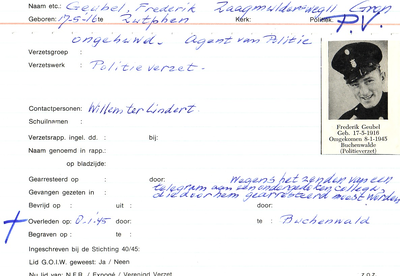 Naam etc.: Geubel, Frederik Zaagmuldersweg 11 Gron
Geboren: 17-5-16 te Zutphen Kerk: Politiek: P.V.
ongehuwd. Agent van Politie
Verzetsgroep :
Verzetswerk : Politieverzet.
Contactpersonen: Willem ter Lindert.
Schuilnamen :
Verzetsrapp. ingel. dd. : bij:
Naam genoemd in rapp.:
op bladzijde:
Frederik Geubel
Geb. 17-5-1916
Omgekomen 8-1-1945
Buchenwalde
(Politieverzet)
Gearresteerd op : door: Wegens het zenden van een
Gevangen gezeten in : telegram aan een ondergedoken collega,
die door hem gearresteerd moest worden
Bevrijd op : uit : door:
Overleden op : 8-1-'45 door: te : Buchenwald
Begraven op : te :
Ingeschreven bij de Stichting 40/45:
Lid G.O.I.W. geweest: Ja / Neen
Nu lid van: N.F.R. / Expogé / Verenigd Verzet